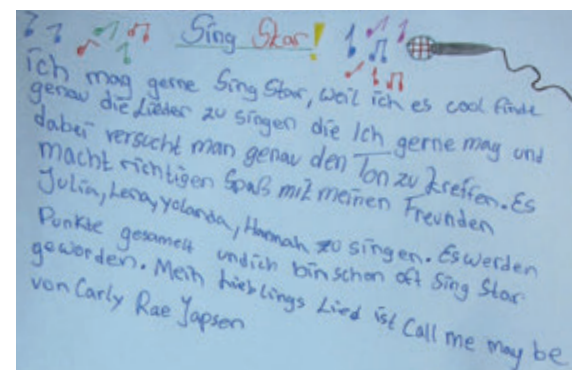 Sing Star!
ich mag gerne Sing Star, weil ich es cool finde
genau die Lieder zu singen die Ich gerne mag und
dabei versucht man genau den Ton zu treffen. Es
macht richtigen Spaß mit meinen Freunden
Julia, Lena, Yolanda, Hannah zu singen. Es werden
Punkte gesamelt und ich bin schon oft Sing Star
geworden. Mein lieblings Lied ist Call me may be
von Carly Rae Japsen